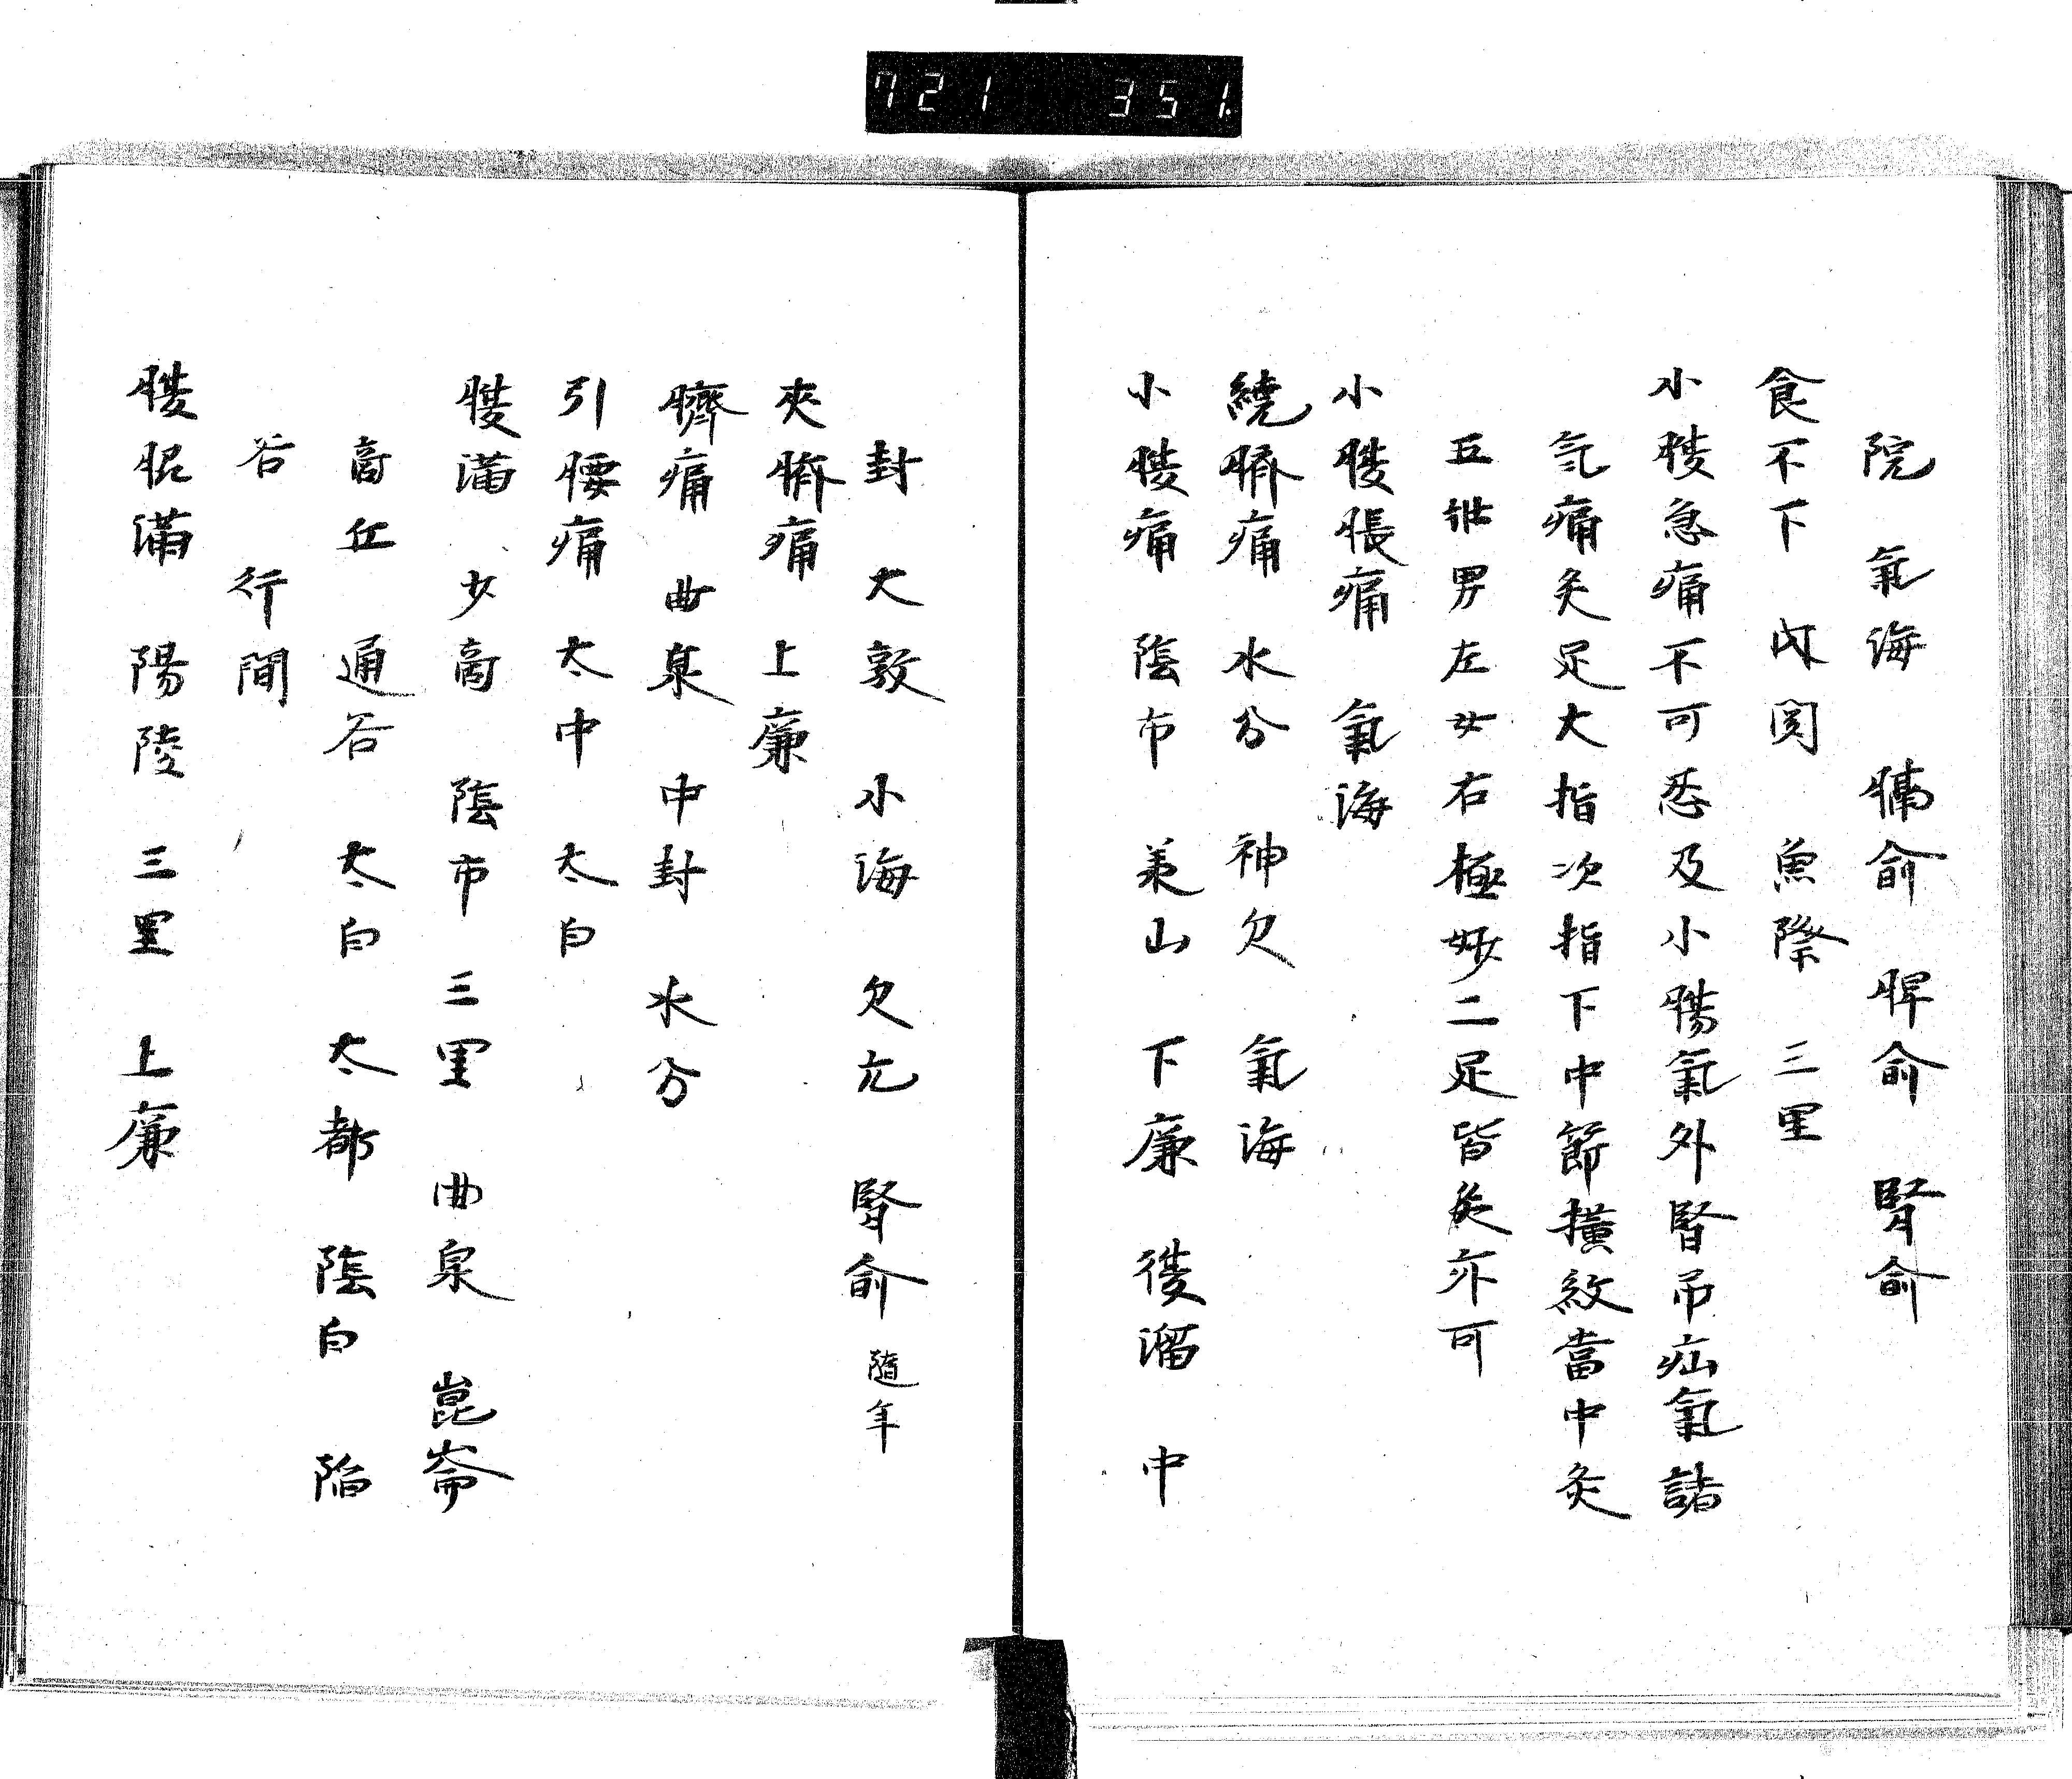 721 351
院 氣海 膈俞 脾俞 腎俞
食不下 内関 魚際 三里
小腹急痛不可忍及小腸氣外腎吊疝氣諸
氣痛灸足大指次指下中節横紋當中灸
五壯男左女右極妙二足皆灸亦可
小腹脹痛 氣海
繞臍痛 水分 神欠 氣海
小腹痛 陰市 羕山 下廉 復溜 中
封 大敦 小海 欠元 腎俞 隨年
夾臍痛 上廉
臍痛 曲泉 中封 水分
引腰痛 太中 太白
腹滿 少商 陰市 三里 曲泉 崑崙
商丘 通谷 太白 太都 陰白 陷
谷 行間
腹脹滿 陽陵 三里 上廉